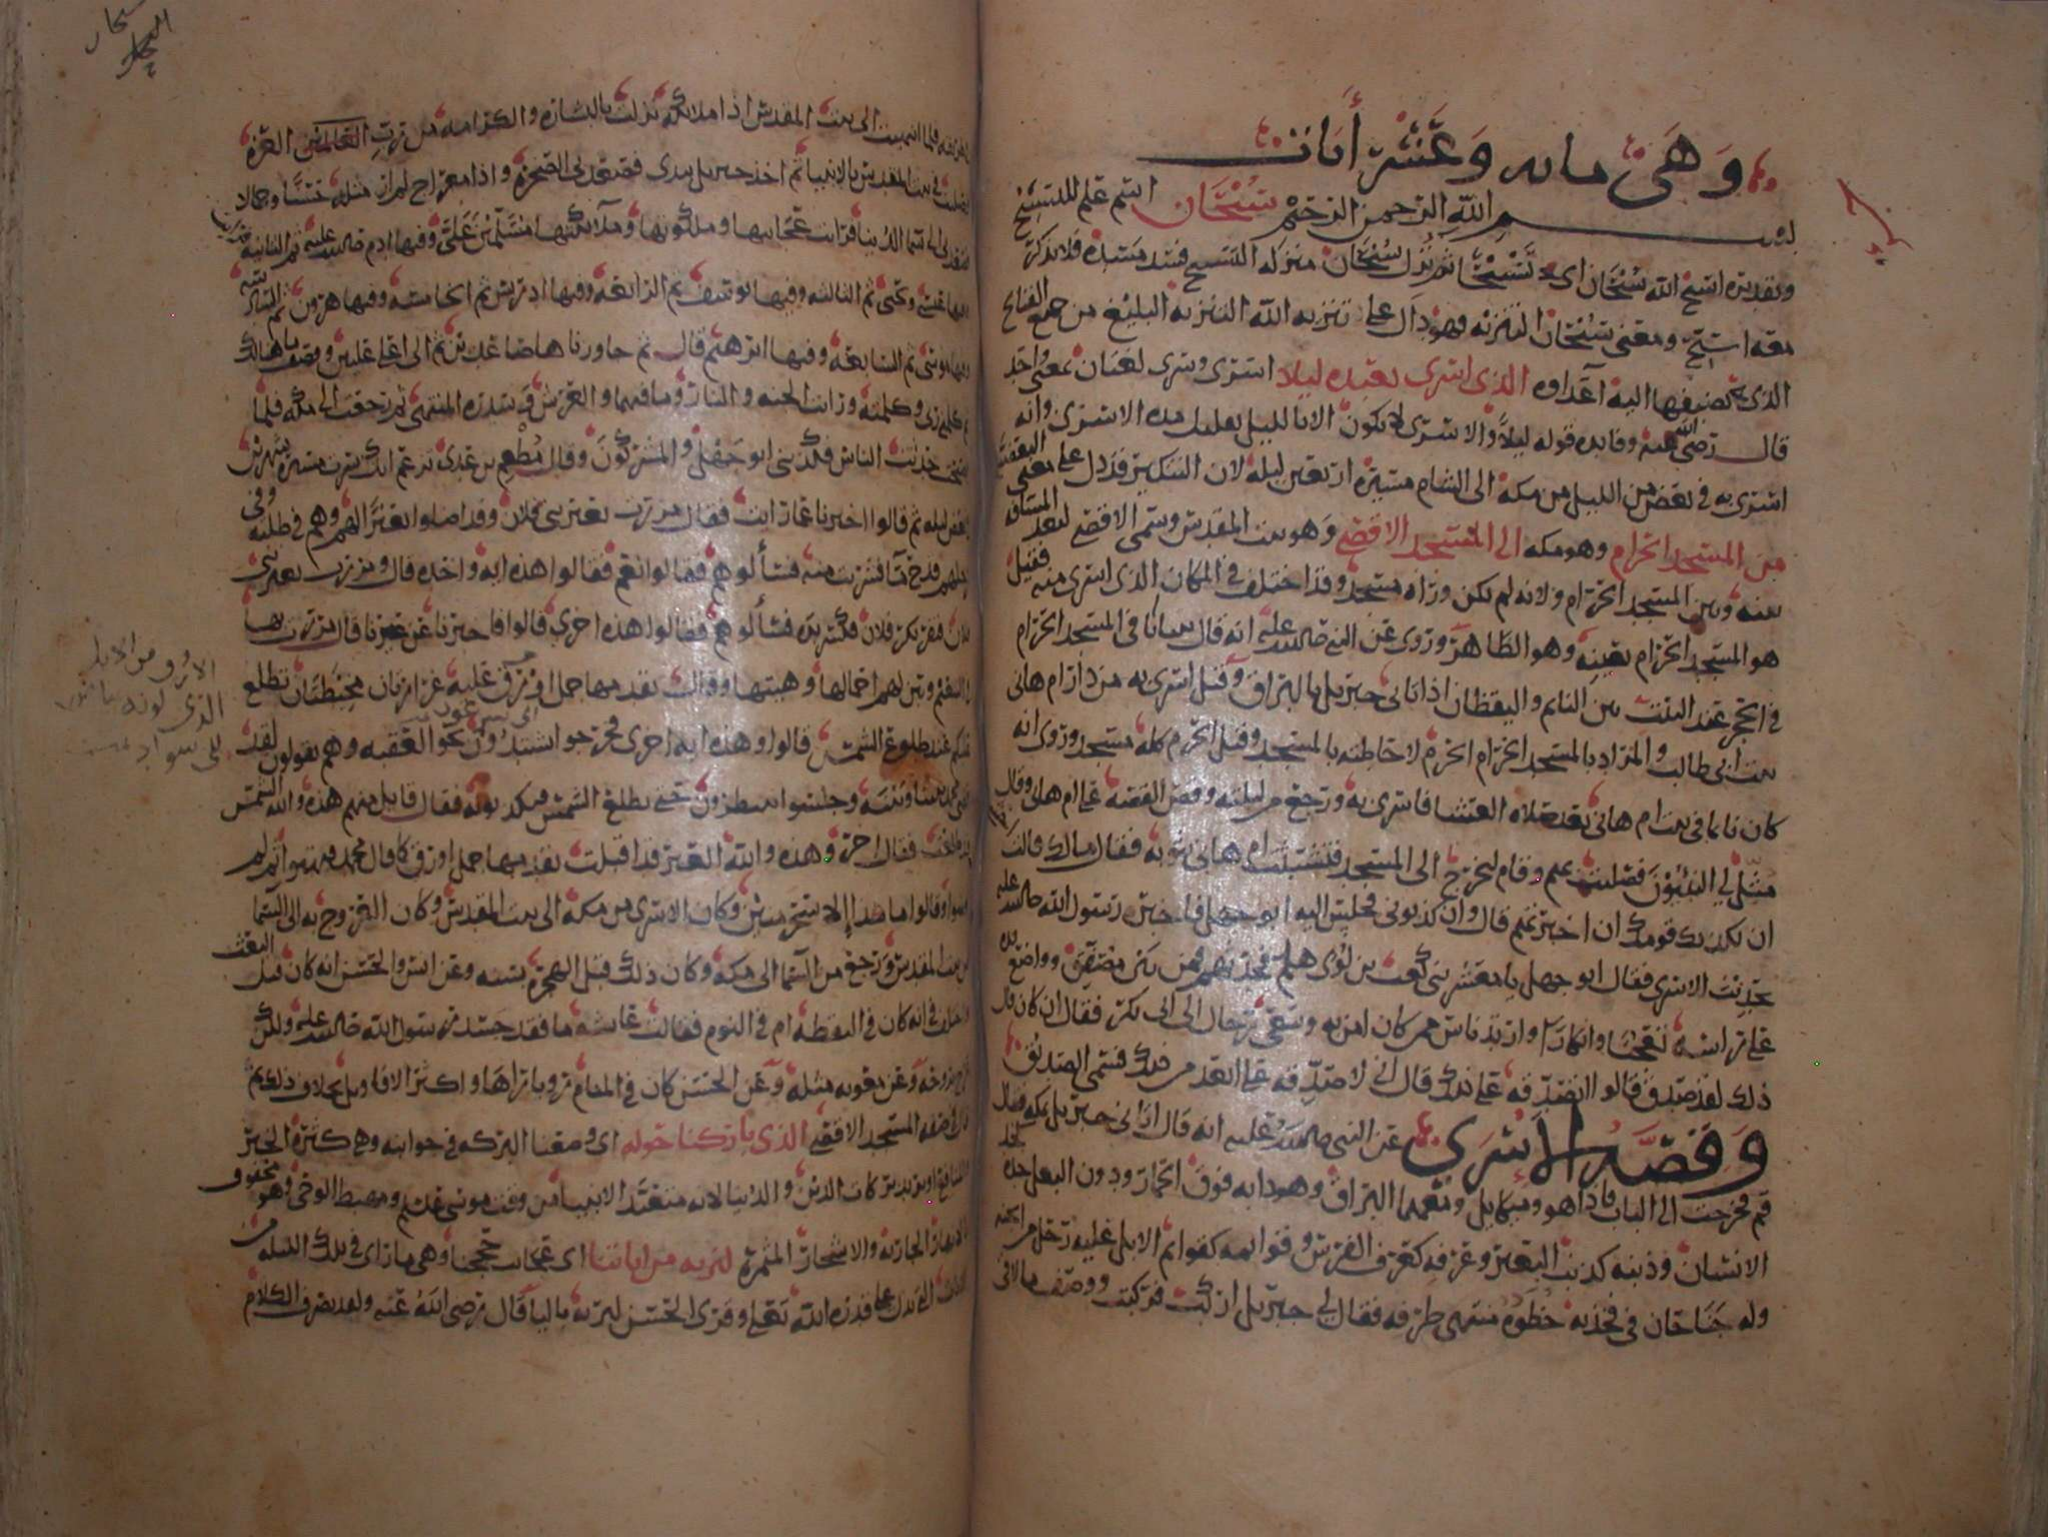 وهي مايه وعشر أيات
بسم الله الرحمن الرحيم سبحان اسم علم للتسبيح
وتقديره اسبح الله سبحان اي تسبيحا ثم نزل سبحان منزله التسبيح فسد مسده فلا يذكر
معه اسبح ومعنى سبحان التنزيه وهو دال على تنزيه الله التنزيه البليغ من جميع القبايح
الذي يضيفها اليه اعداوه الذي اسرى بعبده ليلا اسرى وسرى لغتان بمعنى واحد
قال رضي الله عنه وفايده قوله ليلا والاسرى لا يكون الا بالليل تقليل مده الاسرى وانه
اسرى به في بعض من الليل من مكه الى الشام مسيره اربعين ليله لان التنكير قد دل على معنى البعضيه
من المسجد الحرام وهو مكه الى المسجد الاقصى وهو بيت المقدس وسمي الاقصى لبعد المسافه
بينه وبين المسجد الحرام ولانه لم يكن وراه مسجد وقد اختلف في المكان الذي اسرى منه فقيل
هو المسجد الحرام بعينه وهو الظاهر وروى عن النبي صلى الله عليه انه قال بينا انا في المسجد الحرام
في الحجر عند البيت بين النايم واليقظان اذ اتاني جبريل بالبراق وقيل اسرى به من دار ام هاني
بنت ابي طالب والمراد بالمسجد الحرام الحرم لاحاطته بالمسجد وقيل الحرم كله مسجد وروى انه
كان نايما في بيت ام هاني بعد صلاه العشا فاسرى به ورجع من ليلته وقص القصه على ام هاني وقال
مثل لي النبيون فصليت بهم وقام ليخرج الى المسجد فتشبثت ام هاني بثوبه فقال مالك قالت
ان يكذبك قومك ان اخبرتهم قال وان كذبوني فجلس اليه ابو جهل فاخبره رسول الله صلى الله عليه
بحديث الاسرى فقال ابو جهل يا معشر بني كعب بن لؤى هلم فحدثهم فمن بين مصفق وواضع يده
على راسه تعجبا وانكارا وارتد ناس ممن كان امن به وسعى رجال الى ابي بكر فقال ان كان قال
ذلك لقد صدق قالوا اتصدقه على ذلك قال اني لاصدقه على ابعد من ذلك فسمي الصديق
وقصه الاسرى عن النبي صلى الله عليه انه قال اتاني جبريل بمكه فقال
قم فخرجت الى الباب فاذا هو وميكايل ومعهما البراق وهو دابه فوق الحمار ودون البغل خده كخد
الانسان وذنبه كذنب البعير وعرفه كعرف الفرس وقوايمه كقوايم الابل عليه رحل من الجنه
وله جناحان في فخذيه خطوه منتهى طرفه فقال لي جبريل اركب فركبت ووصف ما لاقى
فلما انتهيت الى بيت المقدس اذا ملايكه نزلت بالبشاره والكرامه من رب العالمين العزه
فصليت في بيت المقدس بالانبيا ثم اخذ جبريل بيدى فصعد بي الى الصخره واذا معراج لم ار مثله حسنا وجمالا
فصعد بي الى السما الدنيا فرايت عجايبها وملكوتها وملايكتها يسلمون علي وفيها ادم صلى الله عليه ثم الثانيه
وفيها عيسى ويحيى ثم الثالثه وفيها يوسف ثم الرابعه وفيها ادريس ثم الخامسه وفيها هرون ثم السادسه
وفيها موسى ثم السابعه وفيها ابرهيم قال ثم جاوزناها صاعدين ثم الى اعلى عليين ووصف ما هنالك
ثم كلمني ربي وكلمته ورايت الجنه والنار وما فيهما والعرش وسدره المنتهى ثم رجعت الى مكه فلما
اصبحت حدثت الناس فكذبني ابو جهل والمشركون وقال مطعم بن عدى تزعم انك سرت مسيره شهرين
في بعض ليله ثم قالوا اخبرنا عما رايت فقال مررت بعير بني فلان وقد اضلوا بعيرا لهم وهم في طلبه وفي
رحلهم قدح ما فشربت منه فسألوهم فقالوا نعم فقالوا هذه ايه واحده قال ومررت بعير بني
فلان فنفر بكر فلان فانكسرت يده فسألوهم فقالوا هذه اخرى قالوا فاخبرنا عن عيرنا قال مررت بها
بالتنعيم وبين لهم احمالها وهيئتها وقال يقدمها جمل اورق عليه غرارتان مخيطتان تطلع
عليكم عند طلوع الشمس قالوا وهذه ايه اخرى فخرجوا يشتدون نحو العقبه وهم يقولون لقد
وجلسوا ينتظرون حتى تطلع الشمس فيكذبونه فقال قايل منهم هذه والله الشمس
قد طلعت فقال اخر وهذه والله العير قد اقبلت يقدمها جمل اورق كما قال محمد فبهتوا ثم لم
يومنوا وقالوا ما هذا إلا سحر مبين وكان الاسرى من مكه الى بيت المقدس وكان العروج به الى السما
من بيت المقدس ورجع من السما الى مكه وكان ذلك قبل الهجره بسنه وعن انس والحسن انه كان قبل البعث
واختلف في انه كان في اليقظه ام في النوم فقالت عايشه ما فقد جسد رسول الله صلى الله عليه ولكن
عرج بروحه وعن معويه مثله وعن الحسن كان في المنام رويا رآها واكثر الاقاويل بخلاف ذلك ثم
قال في صفه المسجد الاقصى الذي باركنا حوله اي وضعنا البركه في جوانبه وهي كثره الخير
والمنافع او يريد بركات الدين والدنيا لانه متعبد الانبيا من وقت موسى عليه ومهبط الوحى وهو محفوف
بالانهار الجاريه والاشجار المثمره لنريه من اياتنا اي عجايب حججنا وهي ما راى في تلك الليله من
الايات التي تدل على قدره الله تعالى وقرى الحسن ليريه باليا قال رضي الله عنه ولقد تصرف الكلام
الاورق من الابل
الذي لونه بياض
الى سواد